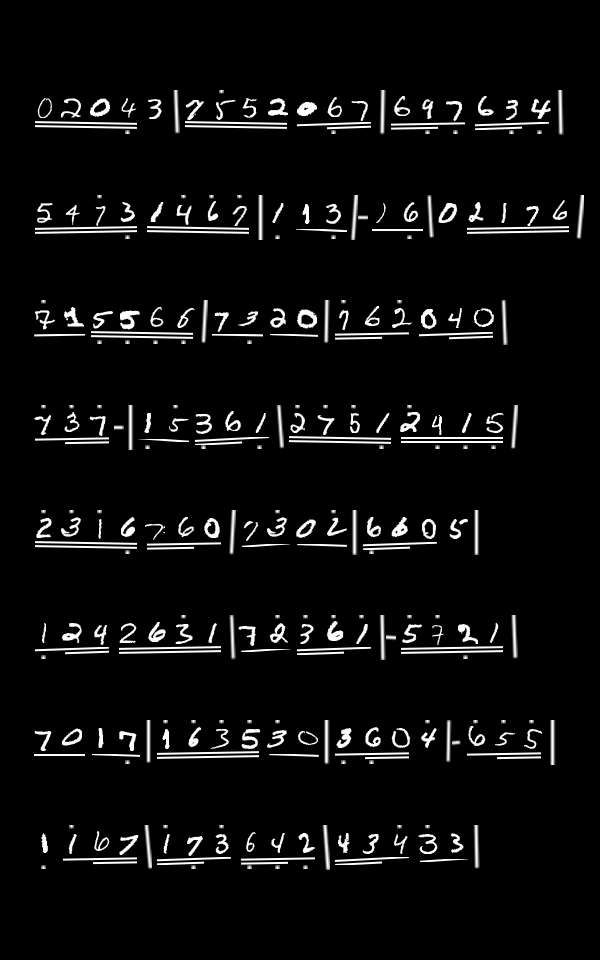 02043|7552067|697634
54731467|113|-16|02176
7155666|7320|762040
737-|15361|27512415
23167760|7302|6605
1242631|72361|-5721
7017|163530|3604|-655
1167|173642|43433